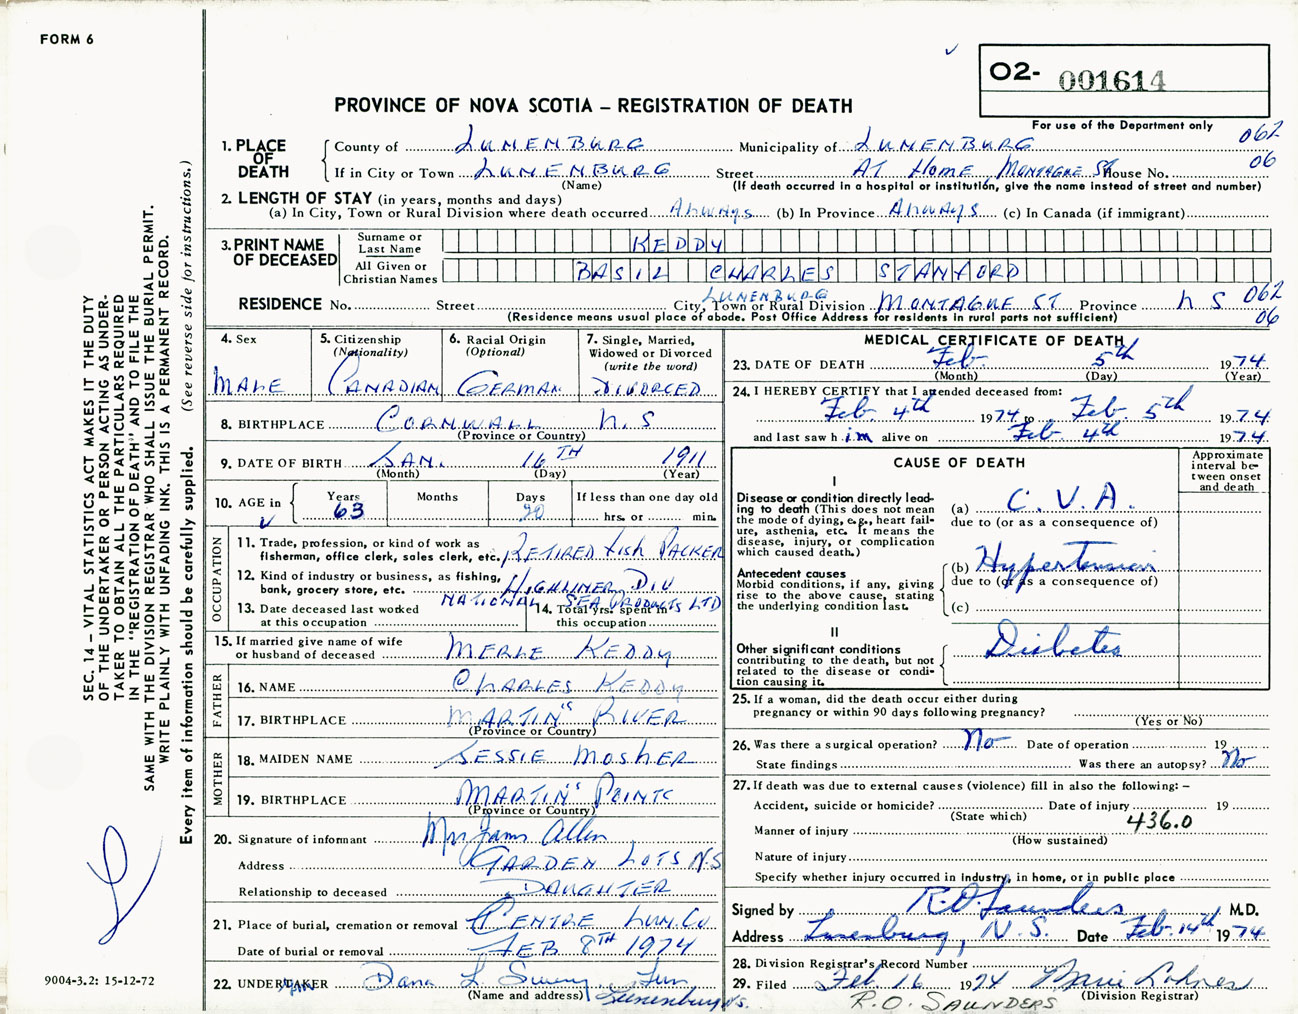 FORM 6
O2- 001614
PROVINCE OF NOVA SCOTIA – REGISTRATION OF DEATH
For use of the Department only
062
06
1. PLACE OF DEATH
County of LUNENBURG Municipality of LUNENBURG
If in City or Town LUNENBURG Street AT HOME MONTAGUE ST House No.
(Name) (If death occurred in a hospital or institution, give the name instead of street and number)
2. LENGTH OF STAY (in years, months and days)
(a) In City, Town or Rural Division where death occurred ALWAYS (b) In Province ALWAYS (c) In Canada (if immigrant)
3. PRINT NAME OF DECEASED
Surname or Last Name KEDDY
All Given or Christian Names BASIL CHARLES STANFORD
RESIDENCE No. Street City, Town or Rural Division LUNENBURG MONTAGUE ST Province N S 062
(Residence means usual place of abode. Post Office Address for residents in rural parts not sufficient) 06
4. Sex
MALE
5. Citizenship
(Nationality)
CANADIAN
6. Racial Origin
(Optional)
GERMAN
7. Single, Married,
Widowed or Divorced
(write the word)
DIVORCED
8. BIRTHPLACE CORNWALL N.S
(Province or Country)
9. DATE OF BIRTH JAN. 16TH 1911
(Month) (Day) (Year)
10. AGE in Years Months Days If less than one day old
63 20 hrs. or min.
OCCUPATION
11. Trade, profession, or kind of work as
fisherman, office clerk, sales clerk, etc. RETIRED FISH PACKER
12. Kind of industry or business, as fishing,
bank, grocery store, etc. HIGHLINER DIV
NATIONAL SEA PRODUCTS LTD
13. Date deceased last worked
at this occupation
14. Total yrs. spent in
this occupation
15. If married give name of wife
or husband of deceased MERLE KEDDY
FATHER
16. NAME CHARLES KEDDY
17. BIRTHPLACE MARTIN'S RIVER
(Province or Country)
MOTHER
18. MAIDEN NAME JESSIE MOSHER
19. BIRTHPLACE MARTIN'S POINT
(Province or Country)
20. Signature of informant Mrs James Allen
Address GARDEN LOTS N.S
Relationship to deceased DAUGHTER
21. Place of burial, cremation or removal CENTRE LUN. CO
Date of burial or removal FEB 8TH 1974
22. UNDERTAKER Dana L. Sweny
(Name and address) Lunenburg N.S.
MEDICAL CERTIFICATE OF DEATH
23. DATE OF DEATH Feb. 5th 1974
(Month) (Day) (Year)
24. I HEREBY CERTIFY that I attended deceased from:
Feb. 4th 1974 to Feb. 5th 1974
and last saw him alive on Feb 4th 1974
CAUSE OF DEATH
Approximate interval between onset and death
I
Disease or condition directly lead-
ing to death (This does not mean
the mode of dying, e.g., heart fail-
ure, asthenia, etc. It means the
disease, injury, or complication
which caused death.)
(a) C.V.A.
due to (or as a consequence of)
Antecedent causes
Morbid conditions, if any, giving
rise to the above cause, stating
the underlying condition last.
(b) Hypertension
due to (or as a consequence of)
(c)
II
Other significant conditions
contributing to the death, but not
related to the disease or condi-
tion causing it.
Diabetes
25. If a woman, did the death occur either during
pregnancy or within 90 days following pregnancy?
(Yes or No)
26. Was there a surgical operation? No Date of operation 19
State findings Was there an autopsy? No
27. If death was due to external causes (violence) fill in also the following: –
Accident, suicide or homicide? Date of injury 19
(State which)
Manner of injury 436.0
(How sustained)
Nature of injury
Specify whether injury occurred in industry, in home, or in public place
Signed by R.O. Saunders M.D.
Address Lunenburg, N.S. Date Feb. 14th 1974
28. Division Registrar's Record Number
29. Filed Feb 16 1974
(Division Registrar)
R.O. SAUNDERS
SEC. 14 – VITAL STATISTICS ACT MAKES IT THE DUTY
OF THE UNDERTAKER OR PERSON ACTING AS UNDER-
TAKER TO OBTAIN ALL THE PARTICULARS REQUIRED
IN THE "REGISTRATION OF DEATH" AND TO FILE THE
SAME WITH THE DIVISION REGISTRAR WHO SHALL ISSUE THE BURIAL PERMIT.
WRITE PLAINLY WITH UNFADING INK. THIS IS A PERMANENT RECORD.
Every item of information should be carefully supplied. (See reverse side for instructions.)
9004-3.2: 15-12-72